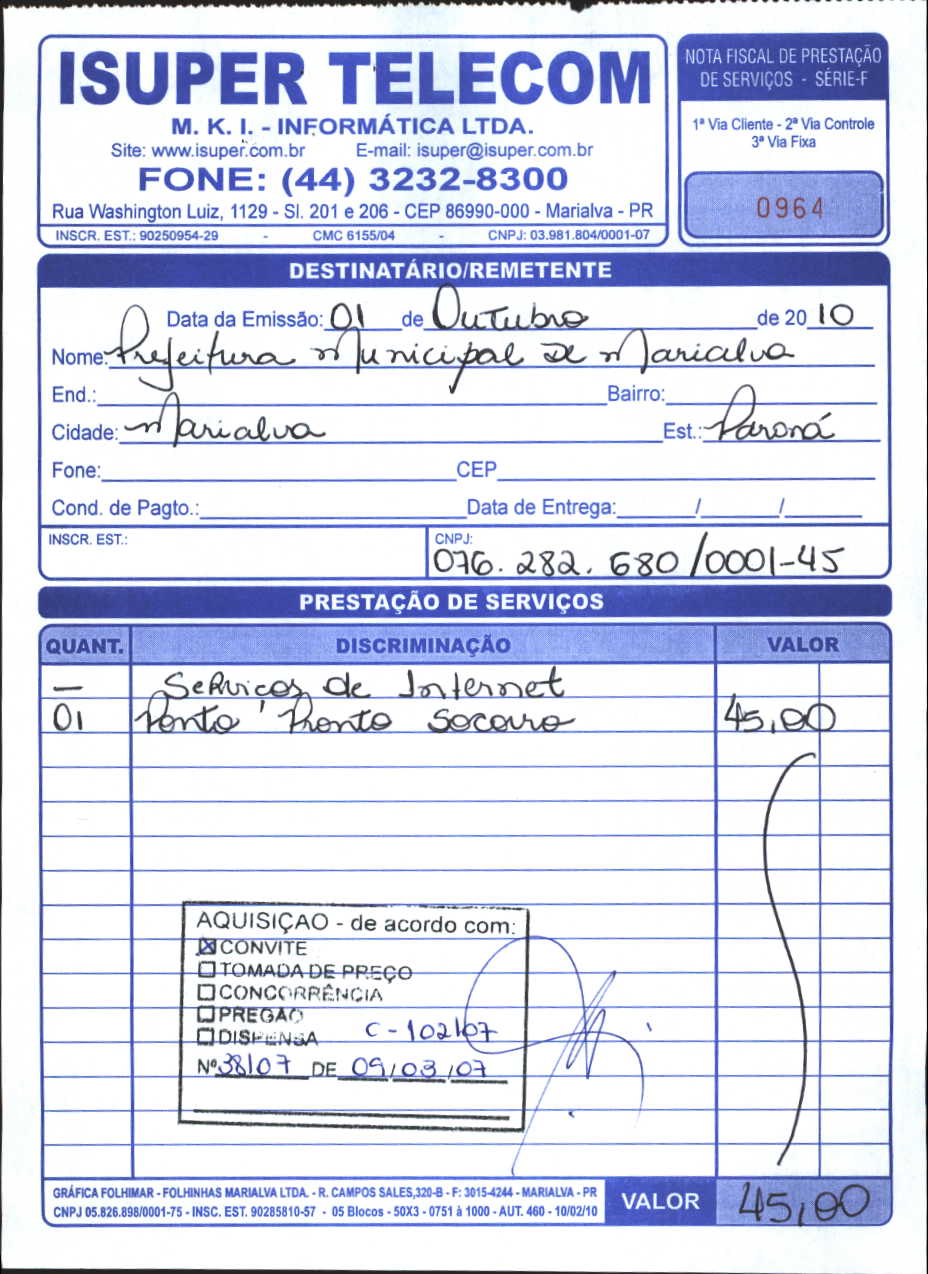 ISUPER TELECOM
M. K. I. - INFORMÁTICA LTDA.
Site: www.isuper.com.br E-mail: isuper@isuper.com.br
FONE: (44) 3232-8300
Rua Washington Luiz, 1129 - Sl. 201 e 206 - CEP 86990-000 - Marialva - PR
INSCR. EST.: 90250954-29 - CMC 6155/04 - CNPJ: 03.981.804/0001-07
NOTA FISCAL DE PRESTAÇÃO
DE SERVIÇOS - SÉRIE-F
1ª Via Cliente - 2ª Via Controle
3ª Via Fixa
0964
DESTINATÁRIO/REMETENTE
Data da Emissão: 01 de Outubro de 2010
Nome: Prefeitura Municipal de Marialva
End.: Bairro:
Cidade: Marialva Est.: Paraná
Fone: CEP
Cond. de Pagto.: Data de Entrega: / /
INSCR. EST.: CNPJ:
076.282.680/0001-45
PRESTAÇÃO DE SERVIÇOS
QUANT. DISCRIMINAÇÃO VALOR
— Serviços de Internet
01 Ponto Pronto Socorro 45,00
AQUISIÇAO - de acordo com:
☒ CONVITE
☐ TOMADA DE PREÇO
☐ CONCORRÊNCIA
☐ PREGAO
☐ DISPENSA C-102/07
Nº 38/07 DE 09/03/07
GRÁFICA FOLHIMAR - FOLHINHAS MARIALVA LTDA. - R. CAMPOS SALES,320-B - F: 3015-4244 - MARIALVA - PR
CNPJ 05.826.898/0001-75 - INSC. EST. 90285810-57 - 05 Blocos - 50X3 - 0751 à 1000 - AUT. 460 - 10/02/10
VALOR 45,00